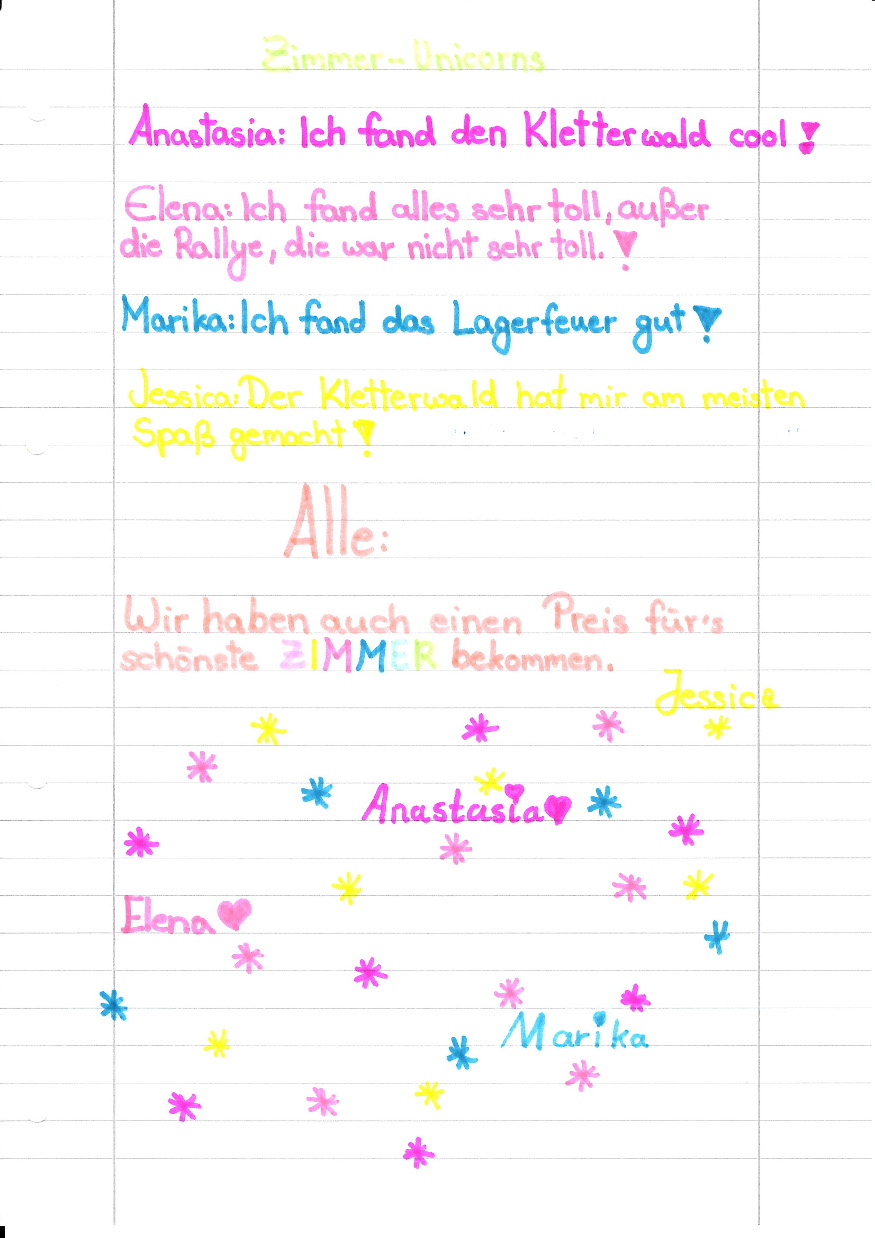 Zimmer-Unicorns
Anastasia: Ich fand den Kletterwald cool!
Elena: Ich fand alles sehr toll, außer
die Rallye, die war nicht sehr toll.!
Marika: Ich fand das Lagerfeuer gut!
Jessica: Der Kletterwald hat mir am meisten
Spaß gemacht!
Alle:
Wir haben auch einen Preis für's
schönste ZIMMER bekommen.
Jessica
Anastasia
Elena
Marika